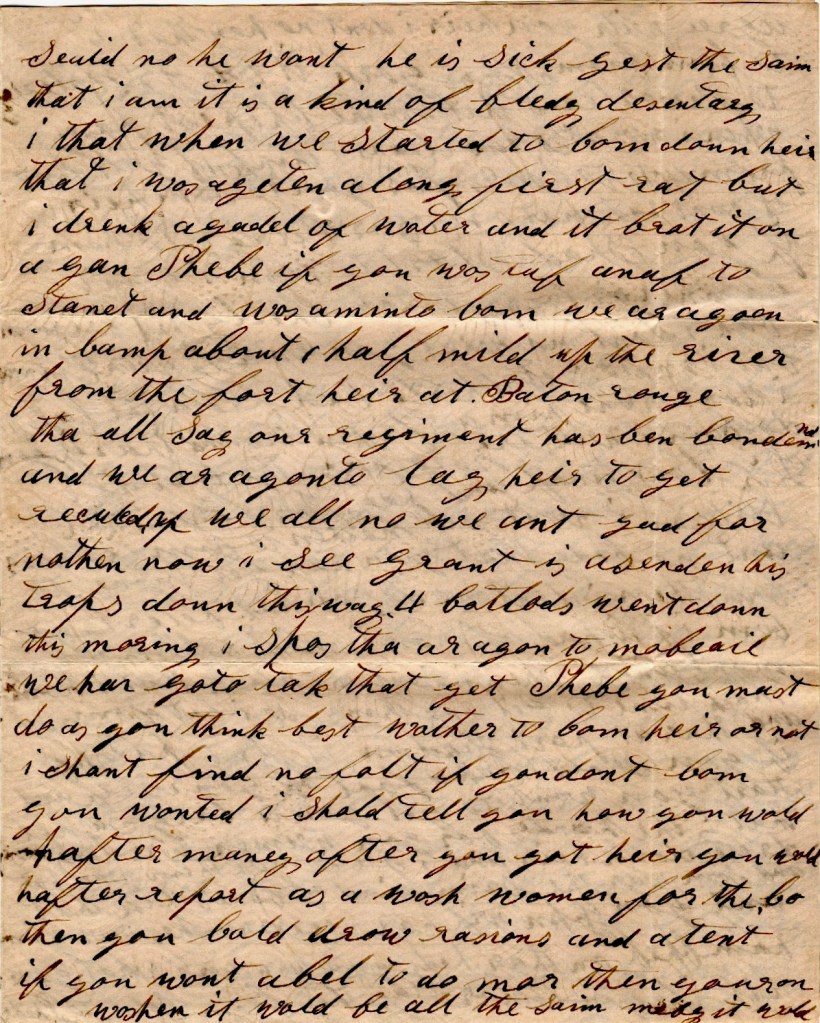 seuid no he wont he is sick gest the saim
that i am it is a kind of bledg desentary
i that when we started to com doun heir
that i wos a geten along first rat but
i drenk a gadel of woter and it brat it on
a gan Phebe if you wos taf anaf to
stanet and wos a minto com we ar agoen
in camp about 1 half mild up the river
from the fort heir at. Baton rouge
tha all say our regiment has ben condemnd
and we ar agonto lay heir to get
up we all no we ant gud for
nothen now i see grant is a senden his
trops doun this way. 4 botlods went doun
this moring i spos tha ar agon to mobeail
we har goto tak that yet Phebe you must
do as you think best wather to com heir or not
i shant find no folt if you dont com
you wonted i shold tell you how you wold
hafter maney after you got heir you wold
hafter report as a wosh women for the. co
then you cold drow rasions and a tent
if you wont abel to do mor then your on
woshen it wold be all the saim it wold